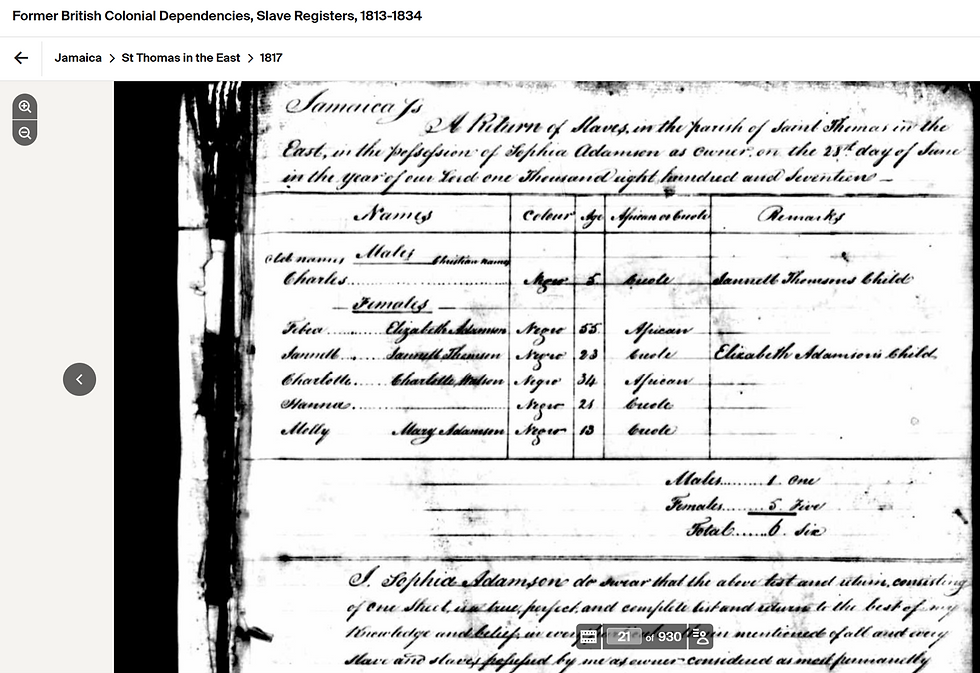 Former British Colonial Dependencies, Slave Registers, 1813-1834
Jamaica > St Thomas in the East > 1817
Jamaica Ss
A Return of Slaves, in the parish of Saint Thomas in the
East, in the possession of Sophia Adamson as owner, on the 28th day of June
in the year of our Lord one Thousand eight hundred and Seventeen
Names Colour Age African or Creole Remarks
Old names Males Christian names
Charles Negro 5 Creole Jannett Thomsons Child
Females
Elizabeth Adamson Negro 55 African
Jannett Jannett Thomson Negro 23 Creole Elizabeth Adamson's Child
Charlotte Charlotte Watson Negro 34 African
Hanna Negro 21 Creole
Molly Mary Adamson Negro 13 Creole
Males 1. One
Females 5 Five
Total 6. Six
I, Sophia Adamson do swear that the above list and return, consisting
of one Sheet, is a true, perfect, and complete list and return to the best of my
Knowledge and belief, in every in mentioned of all and every
21 of 930
Slave and slaves possessed by me as owner considered as most permanently